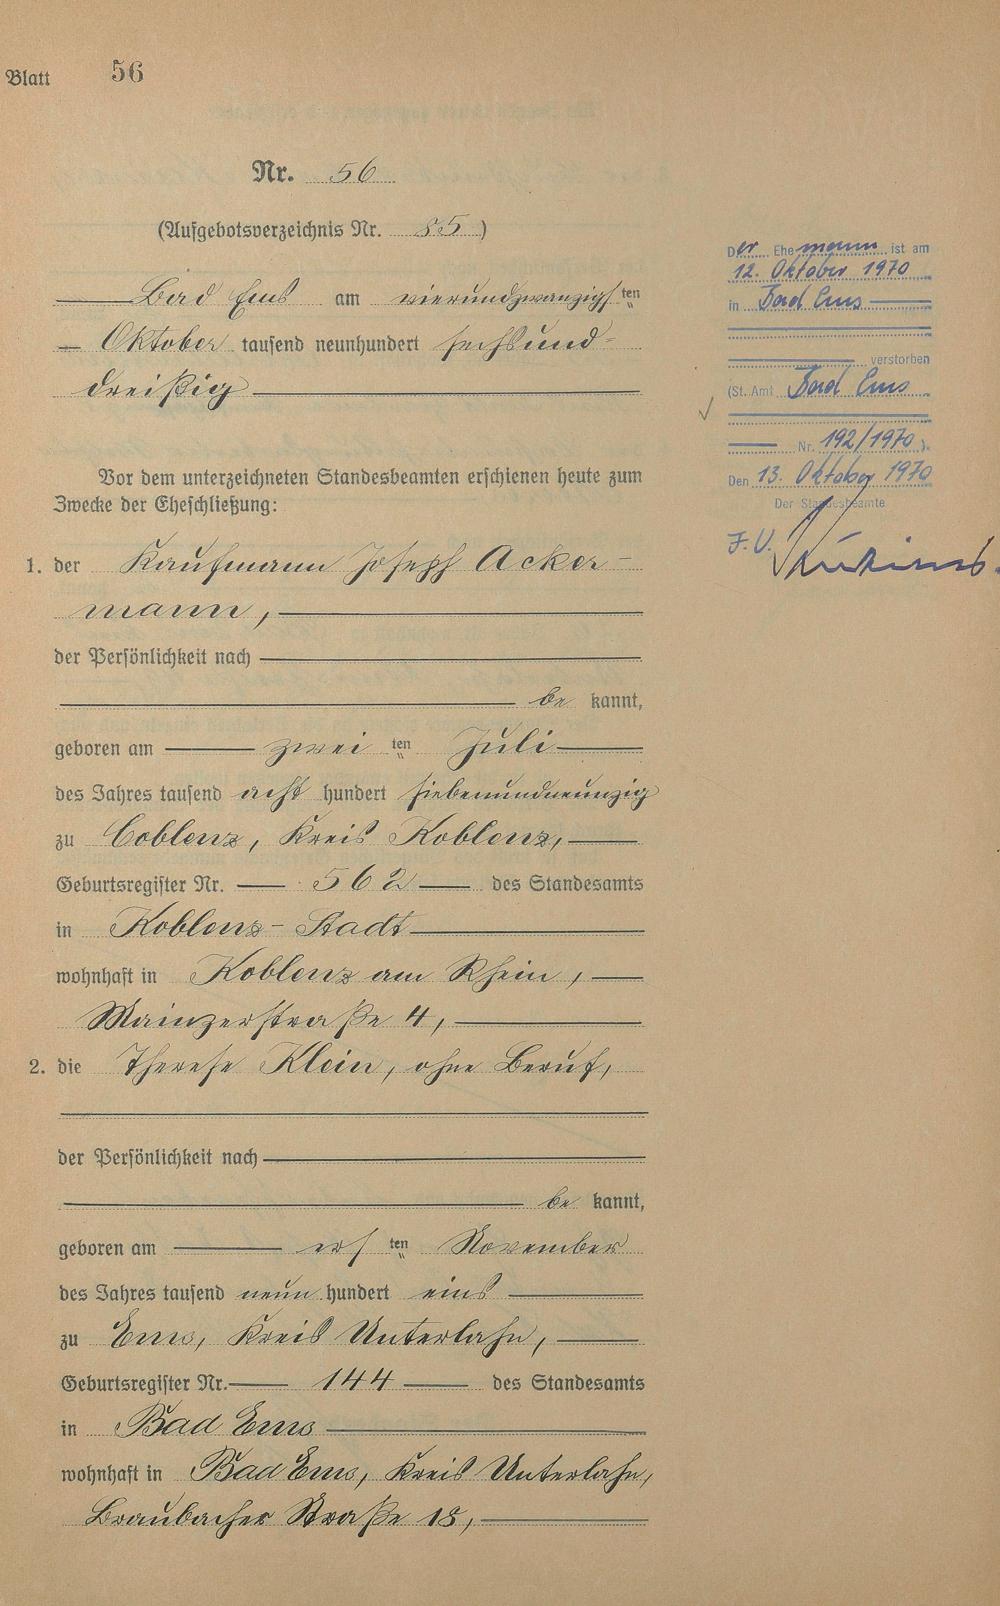 Blatt 56
Nr. 56
(Aufgebotsverzeichnis Nr. 85)
Bad Ems am vierundzwanzigsten
Oktober tausend neunhundert sechsund-
dreißig
Vor dem unterzeichneten Standesbeamten erschienen heute zum
Zwecke der Eheschließung:
1. der Kaufmann Joseph Acker-
mann,
der Persönlichkeit nach
be kannt,
geboren am zwei ten Juli
des Jahres tausend acht hundert siebenundneunzig
zu Coblenz, Kreis Koblenz,
Geburtsregister Nr. 562 des Standesamts
in Koblenz-Stadt
wohnhaft in Koblenz am Rhein,
Mainzerstraße 4,
2. die Therese Klein, ohne Beruf,
der Persönlichkeit nach
be kannt,
geboren am ers ten November
des Jahres tausend neun hundert eins
zu Ems, Kreis Unterlahn,
Geburtsregister Nr. 144 des Standesamts
in Bad Ems
wohnhaft in Bad Ems, Kreis Unterlahn,
Braubacher Straße 18,
Der Ehemann ist am
12. Oktober 1970
in Bad Ems
verstorben
(St. Amt Bad Ems
Nr. 192/1970).
Den 13. Oktober 1970
Der Standesbeamte
J.V.